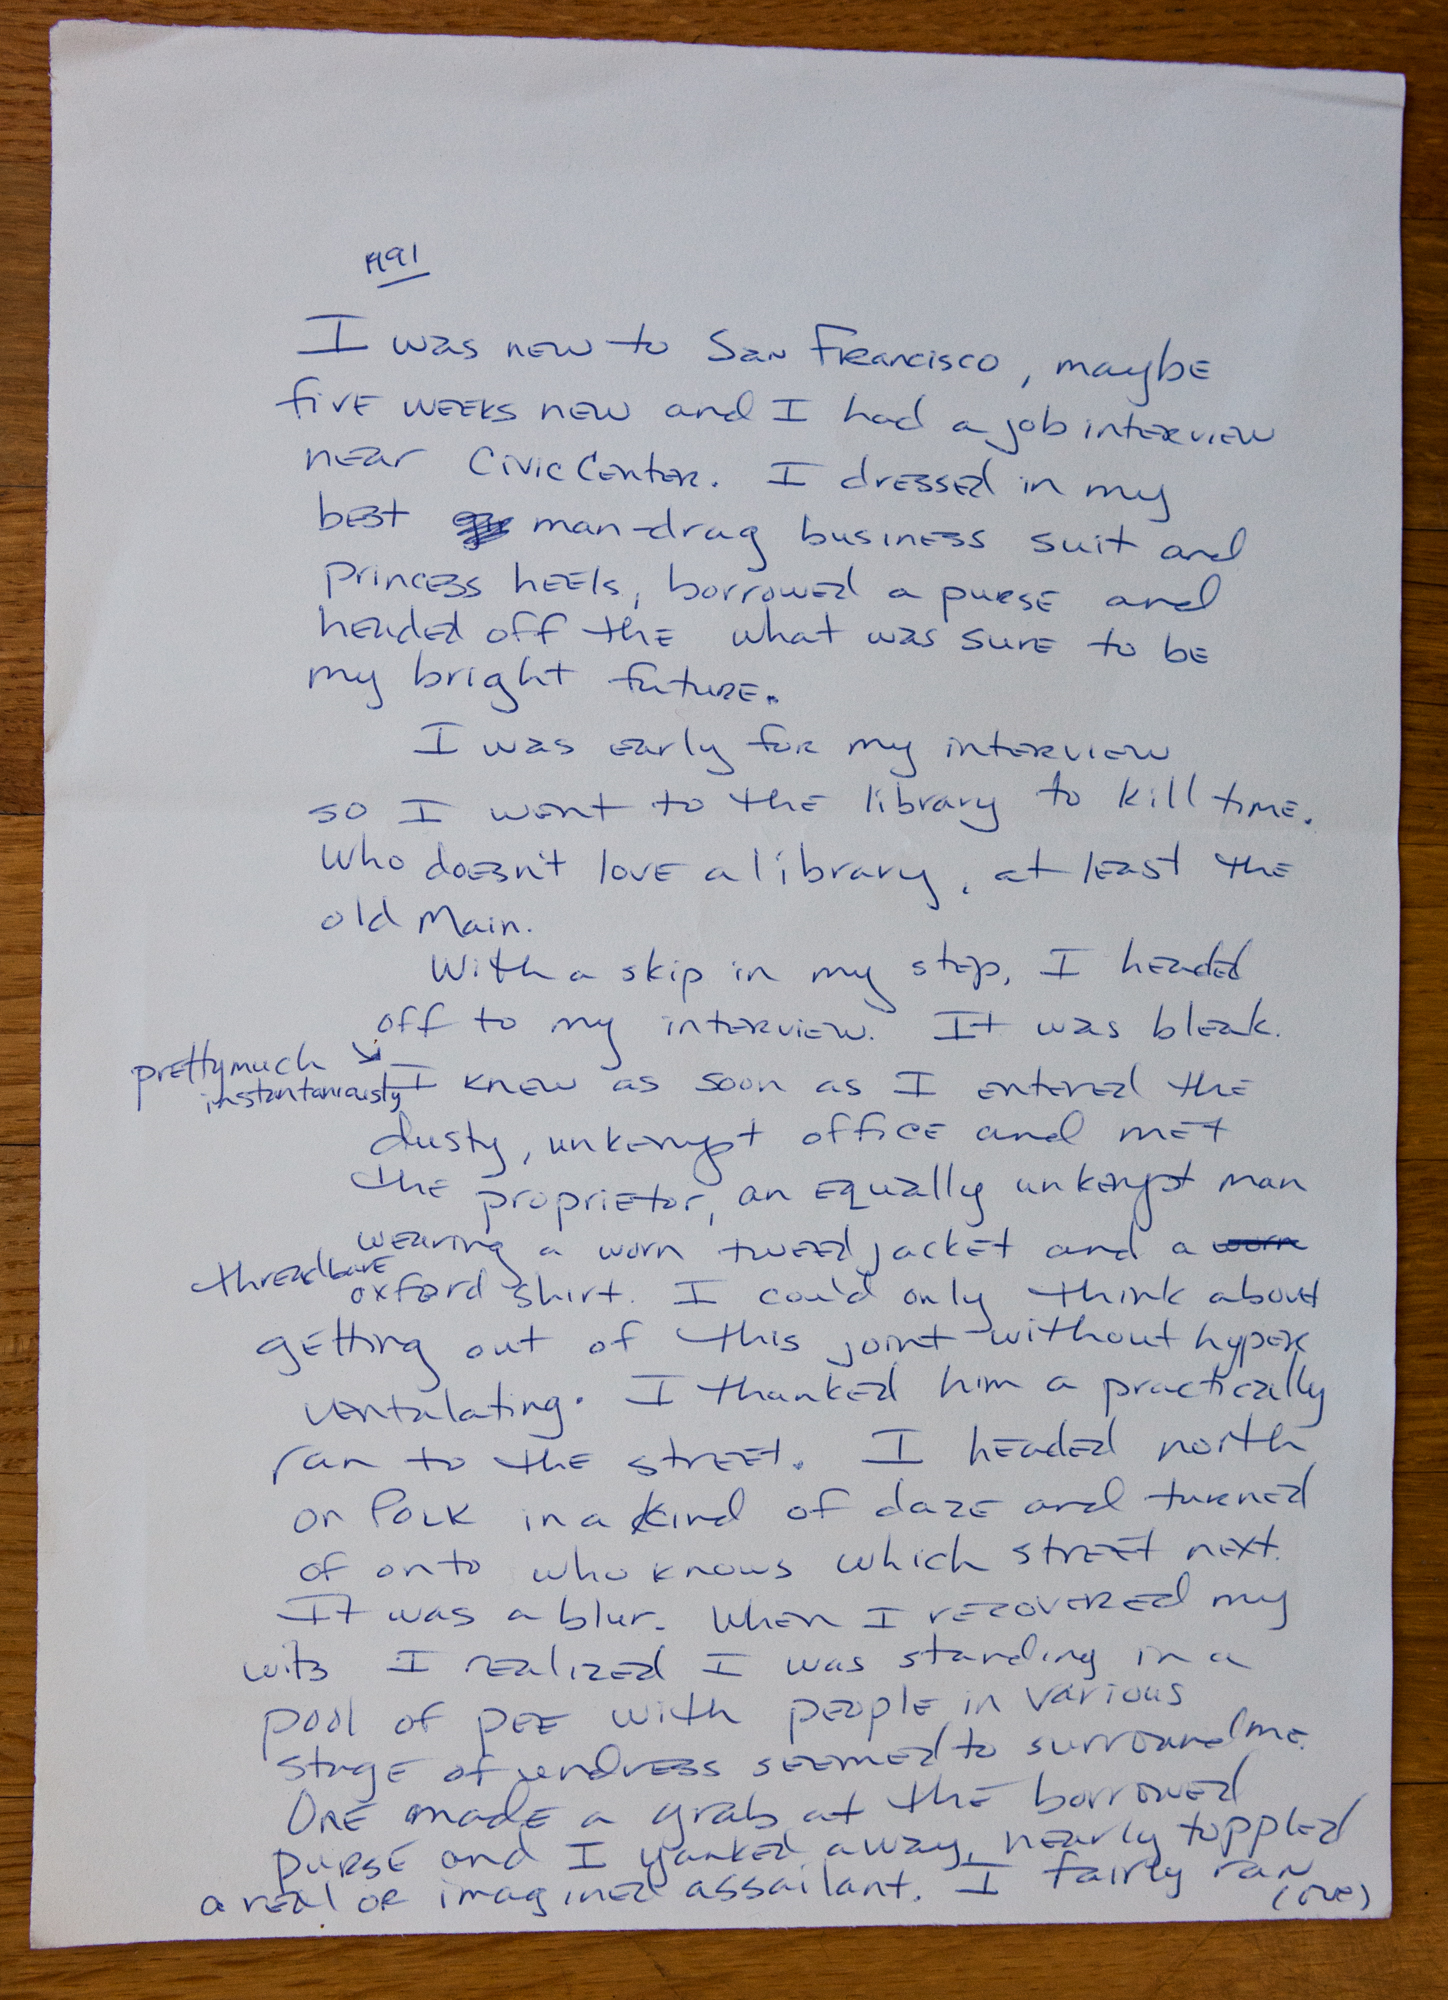 1991
I was new to San Francisco, maybe
five weeks new and I had a job interview
near Civic Center. I dressed in my
best man-drag business suit and
princess heels, borrowed a purse and
headed off the what was sure to be
my bright future.
I was early for my interview
so I went to the library to kill time.
Who doesn't love a library, at least the
old Main.
With a skip in my step, I headed
off to my interview. It was bleak.
pretty much
instantaniously I knew as soon as I entered the
dusty, unkempt office and met
the proprietor, an equally unkempt man
wearing a worn tweed jacket and a worn
threadbare oxford shirt. I could only think about
getting out of this joint without hyper
ventalating. I thanked him a practically
ran to the street. I headed north
on Polk in a kind of daze and turned
of onto who knows which street next.
It was a blur. When I recovered my
wits I realized I was standing in a
pool of pee with people in various
stage of undress seemed to surround me.
One made a grab at the borrowed
purse and I yanked away, nearly toppled
a real or imagined assailant. I fairly ran
(over)